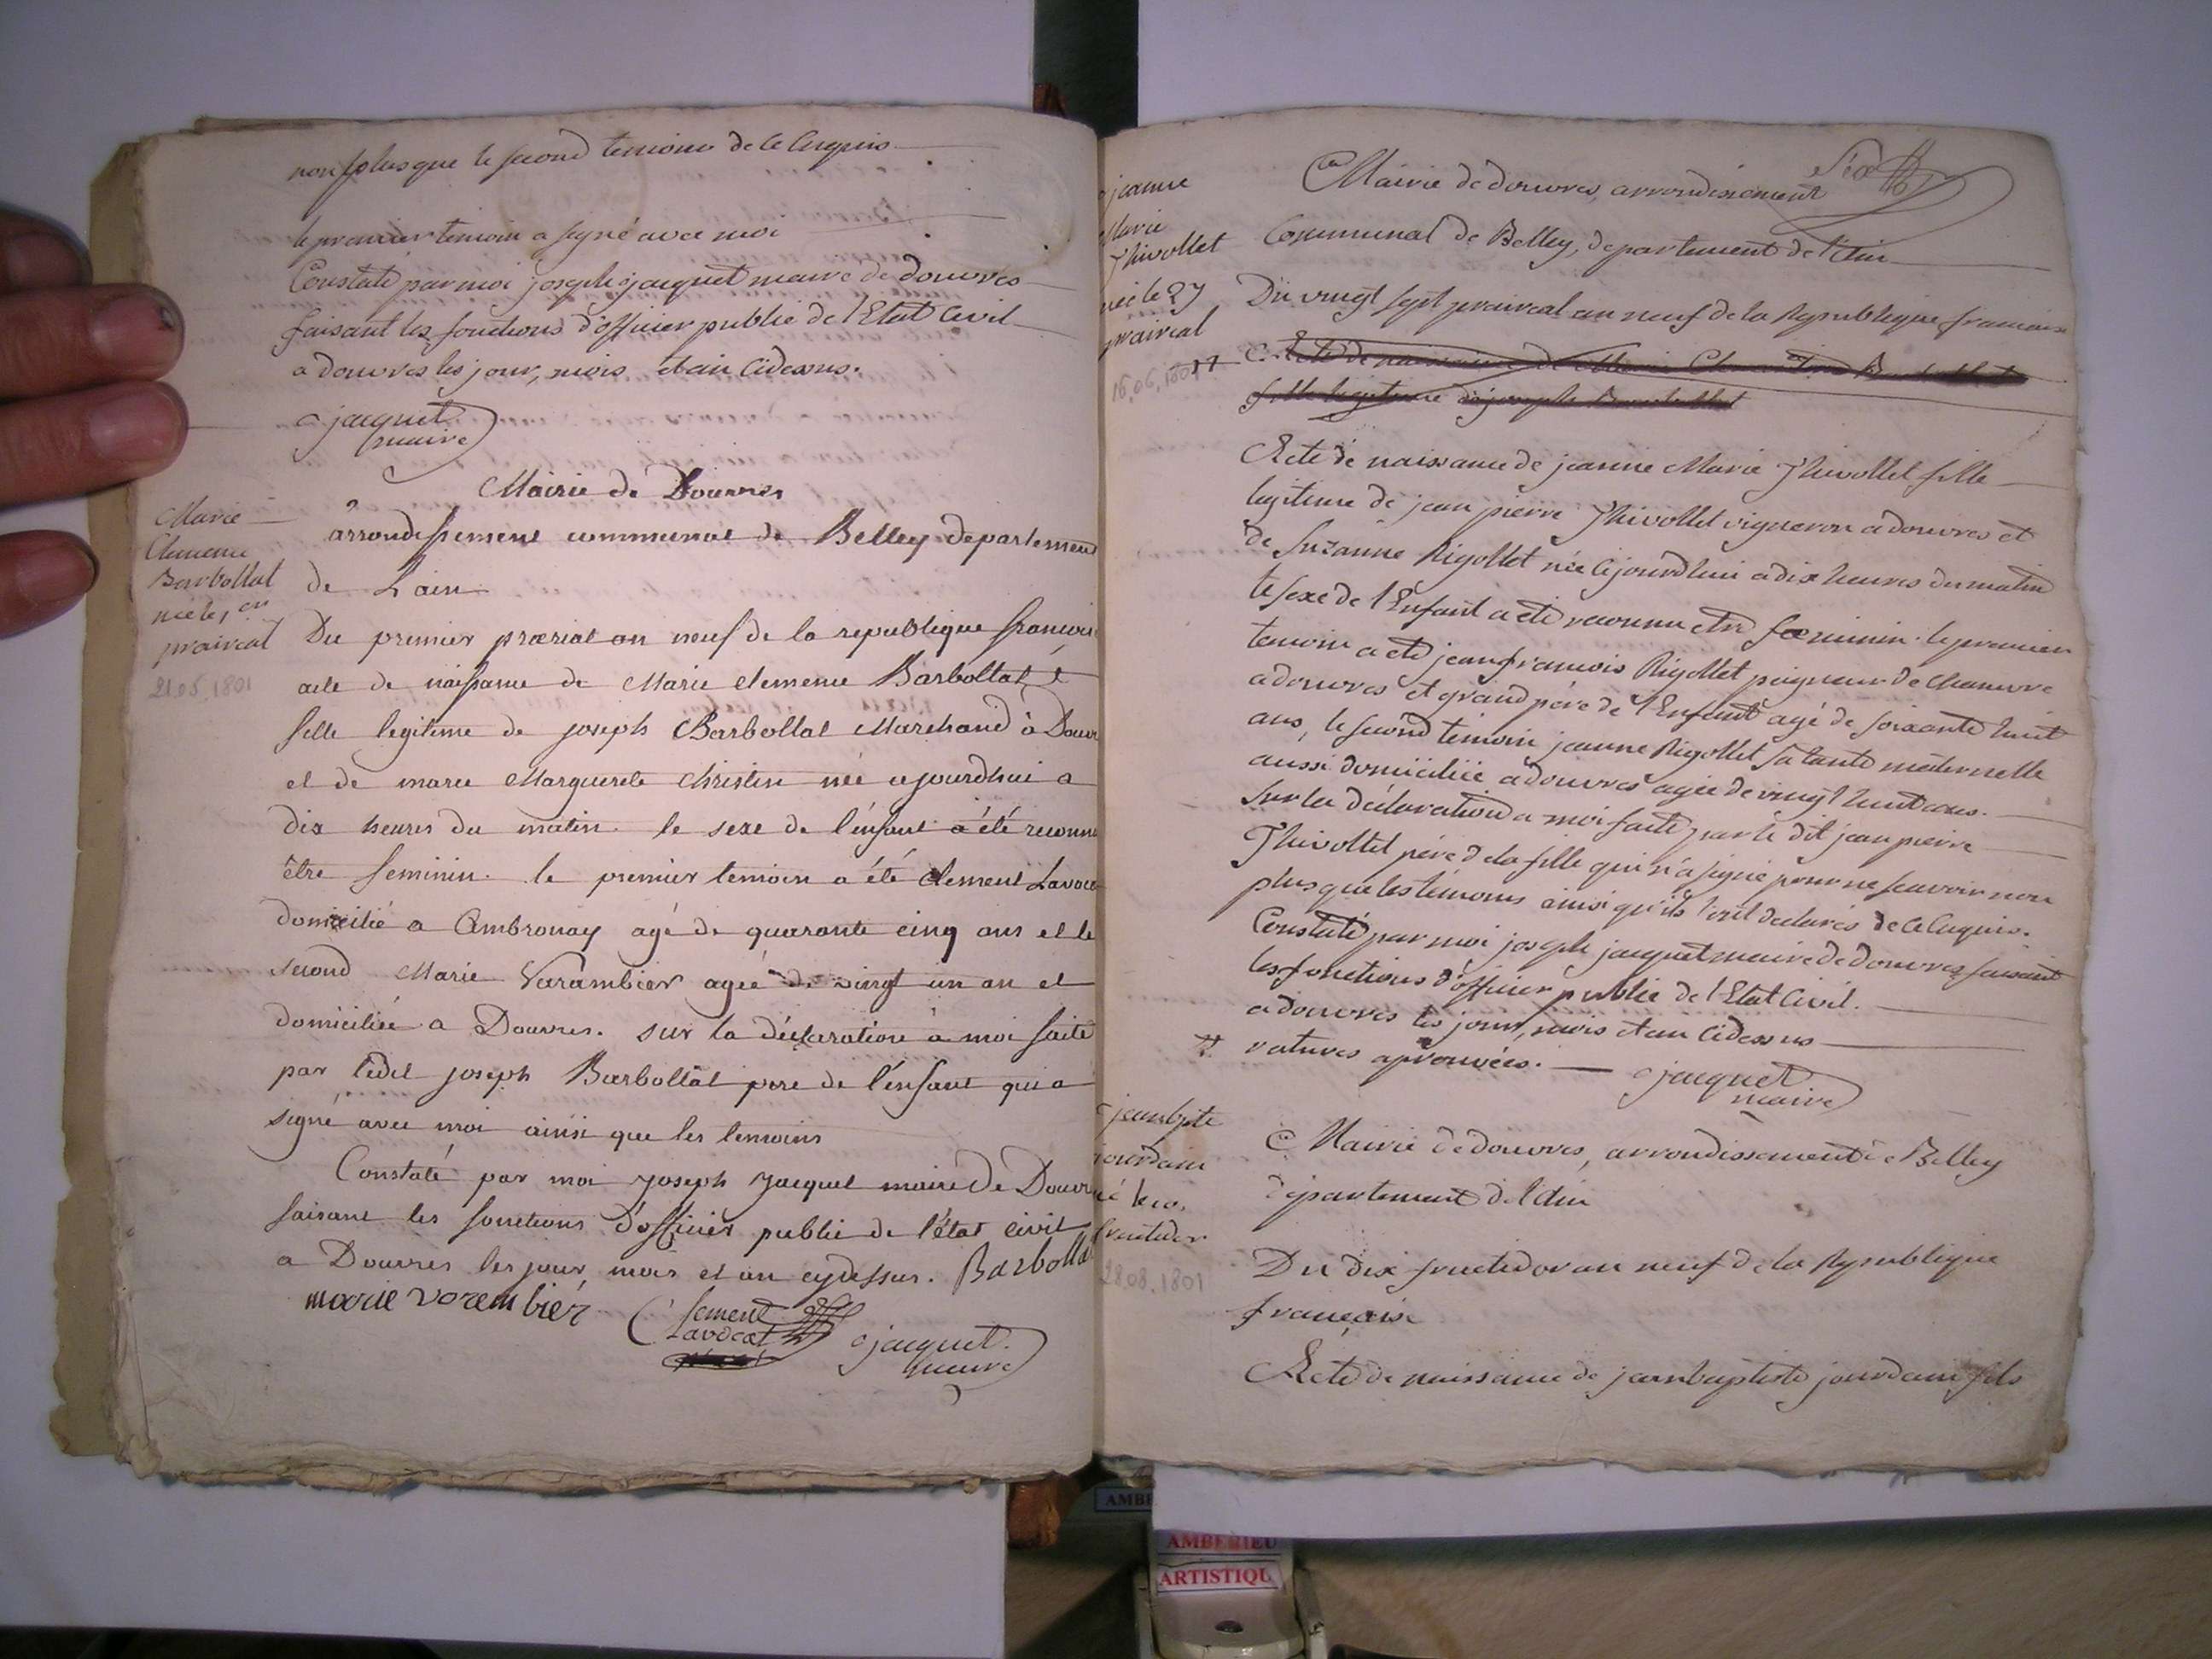 non plus que le second temoin de ce Enquis
le premier temoin a signé avec moi
Constaté par moi joseph jacquet maire de douvres
faisant les fonctions d'officier public de l'Etat Civil
a douvres les jour, mois et an cidessus.
jacquet
maire
Mairie de Douvres
Marie
Clemence
Barbollat
née le 1er
praireal
21.05.1801
arrondissement communal de Belley departement
de Lain
Du premier prærial an neuf de la republique francois
acte de naissance de Marie Clemence Barbollat
fille legitime de joseph Barbollat Marchand à Douvr
et de marie Marguerete Christin née ajourdhui a
dix heures du matin. le sexe de l'enfant a été reconnu
être feminin. le premier temoin a été Clement Lavoca
domicilié a Ambronay agé de quarante cinq ans et le
second Marie Varambier agée de vingt un an et
domiciliée a Douvres. sur la déclaration à moi faite
par ledit joseph Barbollat pere de l'enfant qui a
signé avec moi ainsi que les temoins
Constaté par moi joseph Jacquet maire De Douvr
faisant les fonctions d'officier public de l'état civil
a Douvres les jour mois et an cydessus. Barbolla
marie vorembier
Clement
Lavocat
jacquet
maire
Mairie de douvres, arrondissement
Communal de Belley, departement de l'Ain
jeanne
Marie
Thivollet
née le 27
praireal
16.06.1801
Du vingt sept prairéal an neuf de la Republique francaise
Acte de naissance de Marie Barbollat
fille legitime de joseph Barbollat
Acte de naissance de jeanne Marie Thivollet fille
legitime de jean pierre Thivollet vigneron a douvres et
de Suzanne Rigollet née cejourdhui a dix heures du matin
le sexe de l'Enfant a eté reconnu etre feminin. le premier
temoin a eté jean francois Rigollet peigneur de chanvre
a douvres et grand père de l'Enfant agé de soixante huit
ans, le second temoin jeanne Rigollet sa tante maternelle
aussi domiciliée a douvres agée de vingt huit ans.
Sur la declaration a moi faite par le dit jean pierre
Thivollet père de la fille qui n'a signé pour ne scavoir non
plus que les temoins ainsi qu'ils l'ont declarés de ce Enquis.
Constaté par moi joseph jacquet maire de douvres faisant
les fonctions d'officier public de l'Etat Civil.
a douvres les jour, mois et an cidessus
ratures aprouvées. jacquet
maire
jean bpte
jourdain
né le 10
fructidor
28.08.1801
Mairie de douvres, arrondissement de Belley
département de l'Ain
Du dix fructidor an neuf de la Republique
francaise
Acte de naissance de jean baptiste jourdain fils
AMBE
AMBERIEU
ARTISTIQU